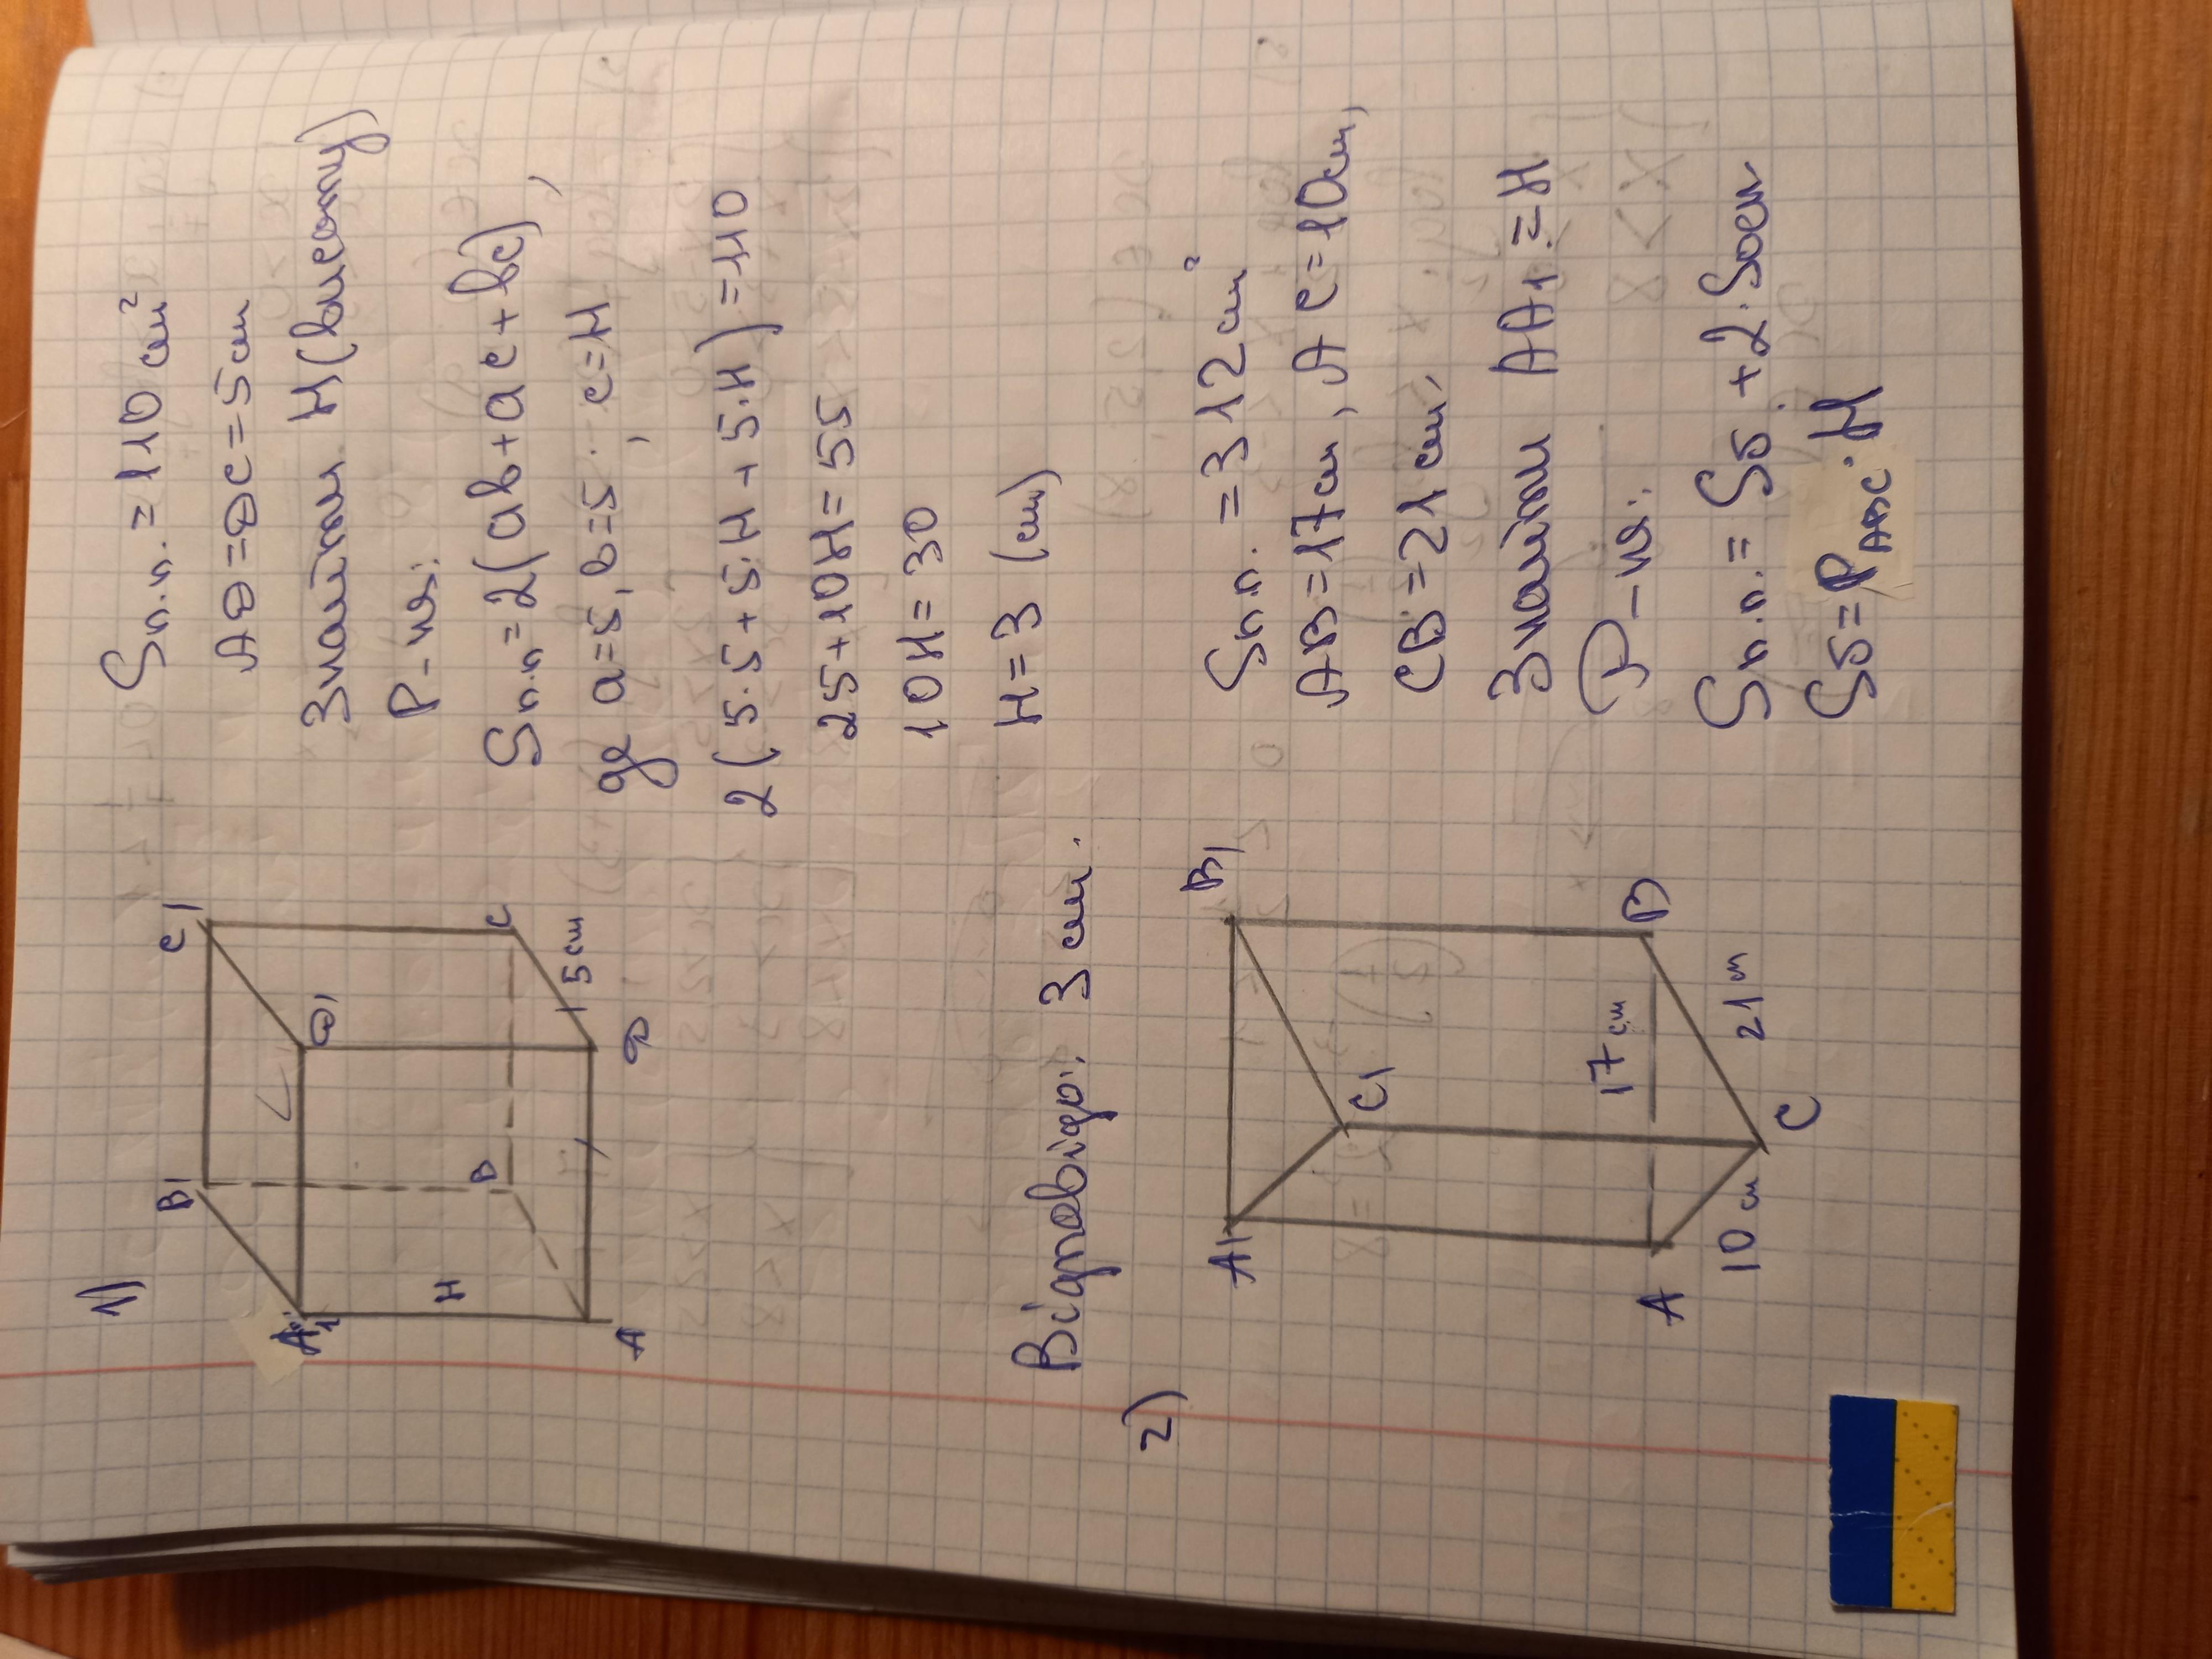 1)
B1
C1
A1
D1
H
B
C
A
D
5 см
Sп.п. = 110 см²
AD = DC = 5 см
Знайти H (висоту)
Р-ня:
Sп.п = 2(ab + ac + bc),
де a=5, b=5, c=H
2(5·5 + 5·H + 5·H) = 110
25 + 10H = 55
10H = 30
H = 3 (см)
Відповідь: 3 см.
2)
A1
B1
C1
17 см
A
B
10 см
21 м
C
Sп.п. = 312 см²
AB = 17 см, AC = 10 см,
CB = 21 см,
Знайти AA1 = H
Р-ня:
Sп.п. = Sб + 2·Sосн
Sб = P ABC · H